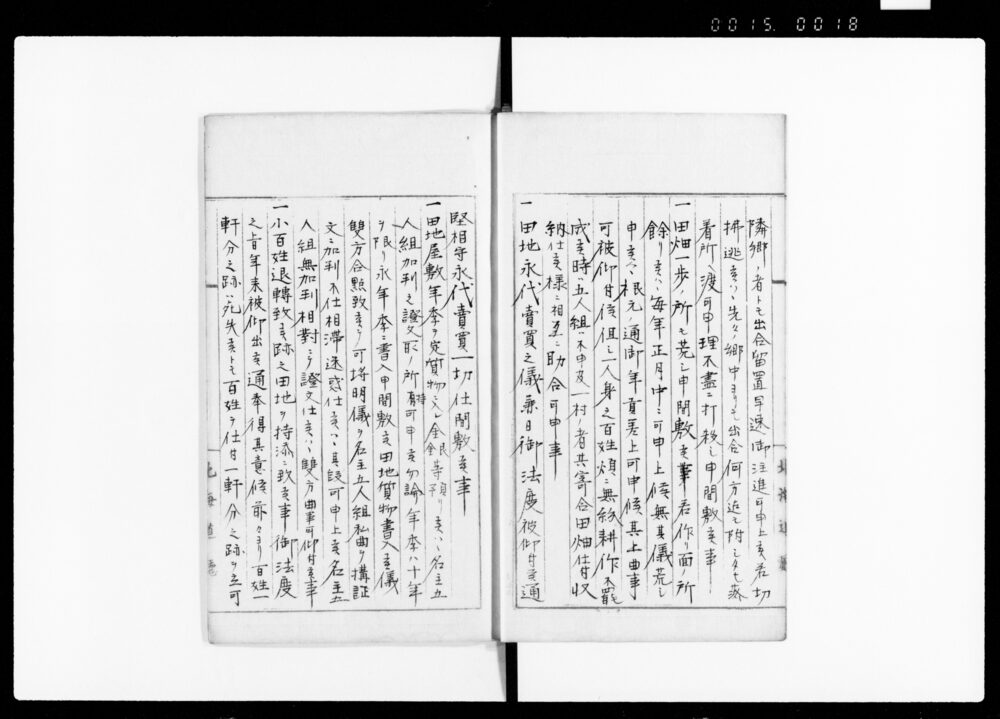 0015. 0018
隣郷ノ者トモ出合留置早速御注進可申上候若切
拂逃候ハヽ先々郷中ヨリモ出合何方迄モ附シタヒ落
着所ヘ渡可申理不盡ニ打殺シ申間敷候事
一田畑一歩ノ所モ荒シ申間敷候事若作リ面ノ所
餘リ候ハヽ毎年正月中ニ可申上候無其儀荒シ
申候ハヽ根元ノ通御年貢差上可申候其上曲事
可被仰付候但シ一人身之百姓煩ニ無紛耕作不罷
成候時五人組ハ不申及一村ノ者共寄合田畑仕付収
納仕候様ニ相互ニ助合可申事
一田地永代賣買之儀兼日御法度被仰付候通
堅相守永代賣買一切仕間敷候事
一田地屋敷年季ヲ定質物ニ入金銀等預リ候ハヽ名主五
人組加判之證文取ノ所持可申候勿論年季ハ十年
ヲ限リ永年季ニ書入申間敷候田地質物書入候儀
雙方合點致候ヲ可埒明儀ヲ名主五人組私曲ヲ搆証
文ニ加判不仕相滞迷惑仕候ハヽ其段可申上候名主五
人組無加判相對ニテ證文仕候ハヽ雙方曲事可仰付候事
一小百姓退轉致候跡之田地ヲ持添ニ致候事御法度
之旨年来被仰出候通奉得其意候前々ヨリ百姓一
軒分之跡ハ死失候トモ百姓ヲ仕付一軒分之跡ヲ立可
北海道廳